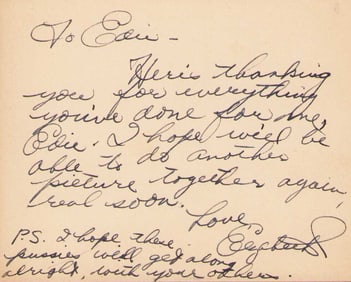 To Edie -
Here's thanking
you for everything
you've done for me,
Edie. I hope we'll be
able to do another
picture together again,
real soon.
Love,
Elizabeth
P.S. I hope these
pussies will get along
alright, with your others.